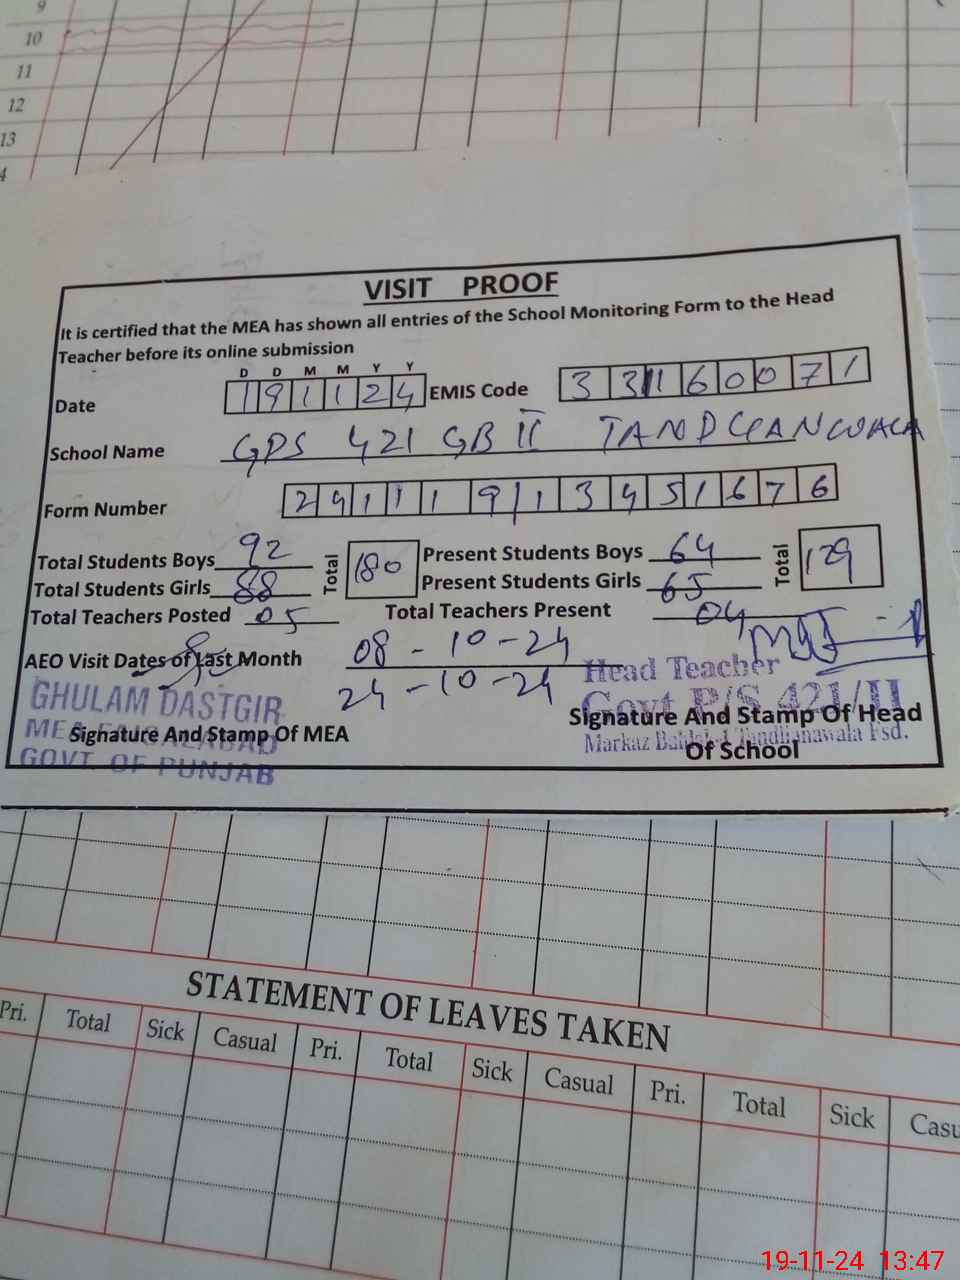 9
10
11
12
13
4
VISIT PROOF
It is certified that the MEA has shown all entries of the School Monitoring Form to the Head
Teacher before its online submission
D D M M Y Y
Date 191124 EMIS Code 33160071
School Name GPS 421 GB II TANDLIANWALA
Form Number 24111 9/13451676
Total Students Boys 92 Total 180 Present Students Boys 64 Total 129
Total Students Girls 88 Present Students Girls 65
Total Teachers Posted 05 Total Teachers Present 04
AEO Visit Dates of Last Month 08-10-24
24-10-24
GHULAM DASTGIR
MEA FAISALABAD
Signature And Stamp Of MEA
GOVT. OF PUNJAB
Head Teacher
Govt P/S 421/II
Signature And Stamp Of Head
Markaz Tandlianawala Fsd.
Of School
STATEMENT OF LEAVES TAKEN
Pri. Total Sick Casual Pri. Total Sick Casual Pri. Total Sick Casu
19-11-24 13:47